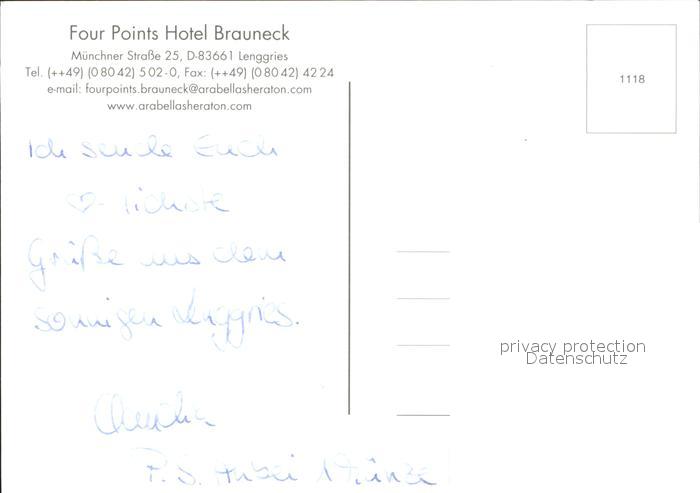 Four Points Hotel Brauneck
Münchner Straße 25, D-83661 Lenggries
Tel. (++49) (0 80 42) 5 02-0, Fax: (++49) (0 80 42) 42 24
e-mail: fourpoints.brauneck@arabellasheraton.com
www.arabellasheraton.com
1118
Ich sende Euch
♡-lichste
Grüße aus dem
sonnigen Lenggries.
P.S. Anbei 1 Münze
privacy protection
Datenschutz